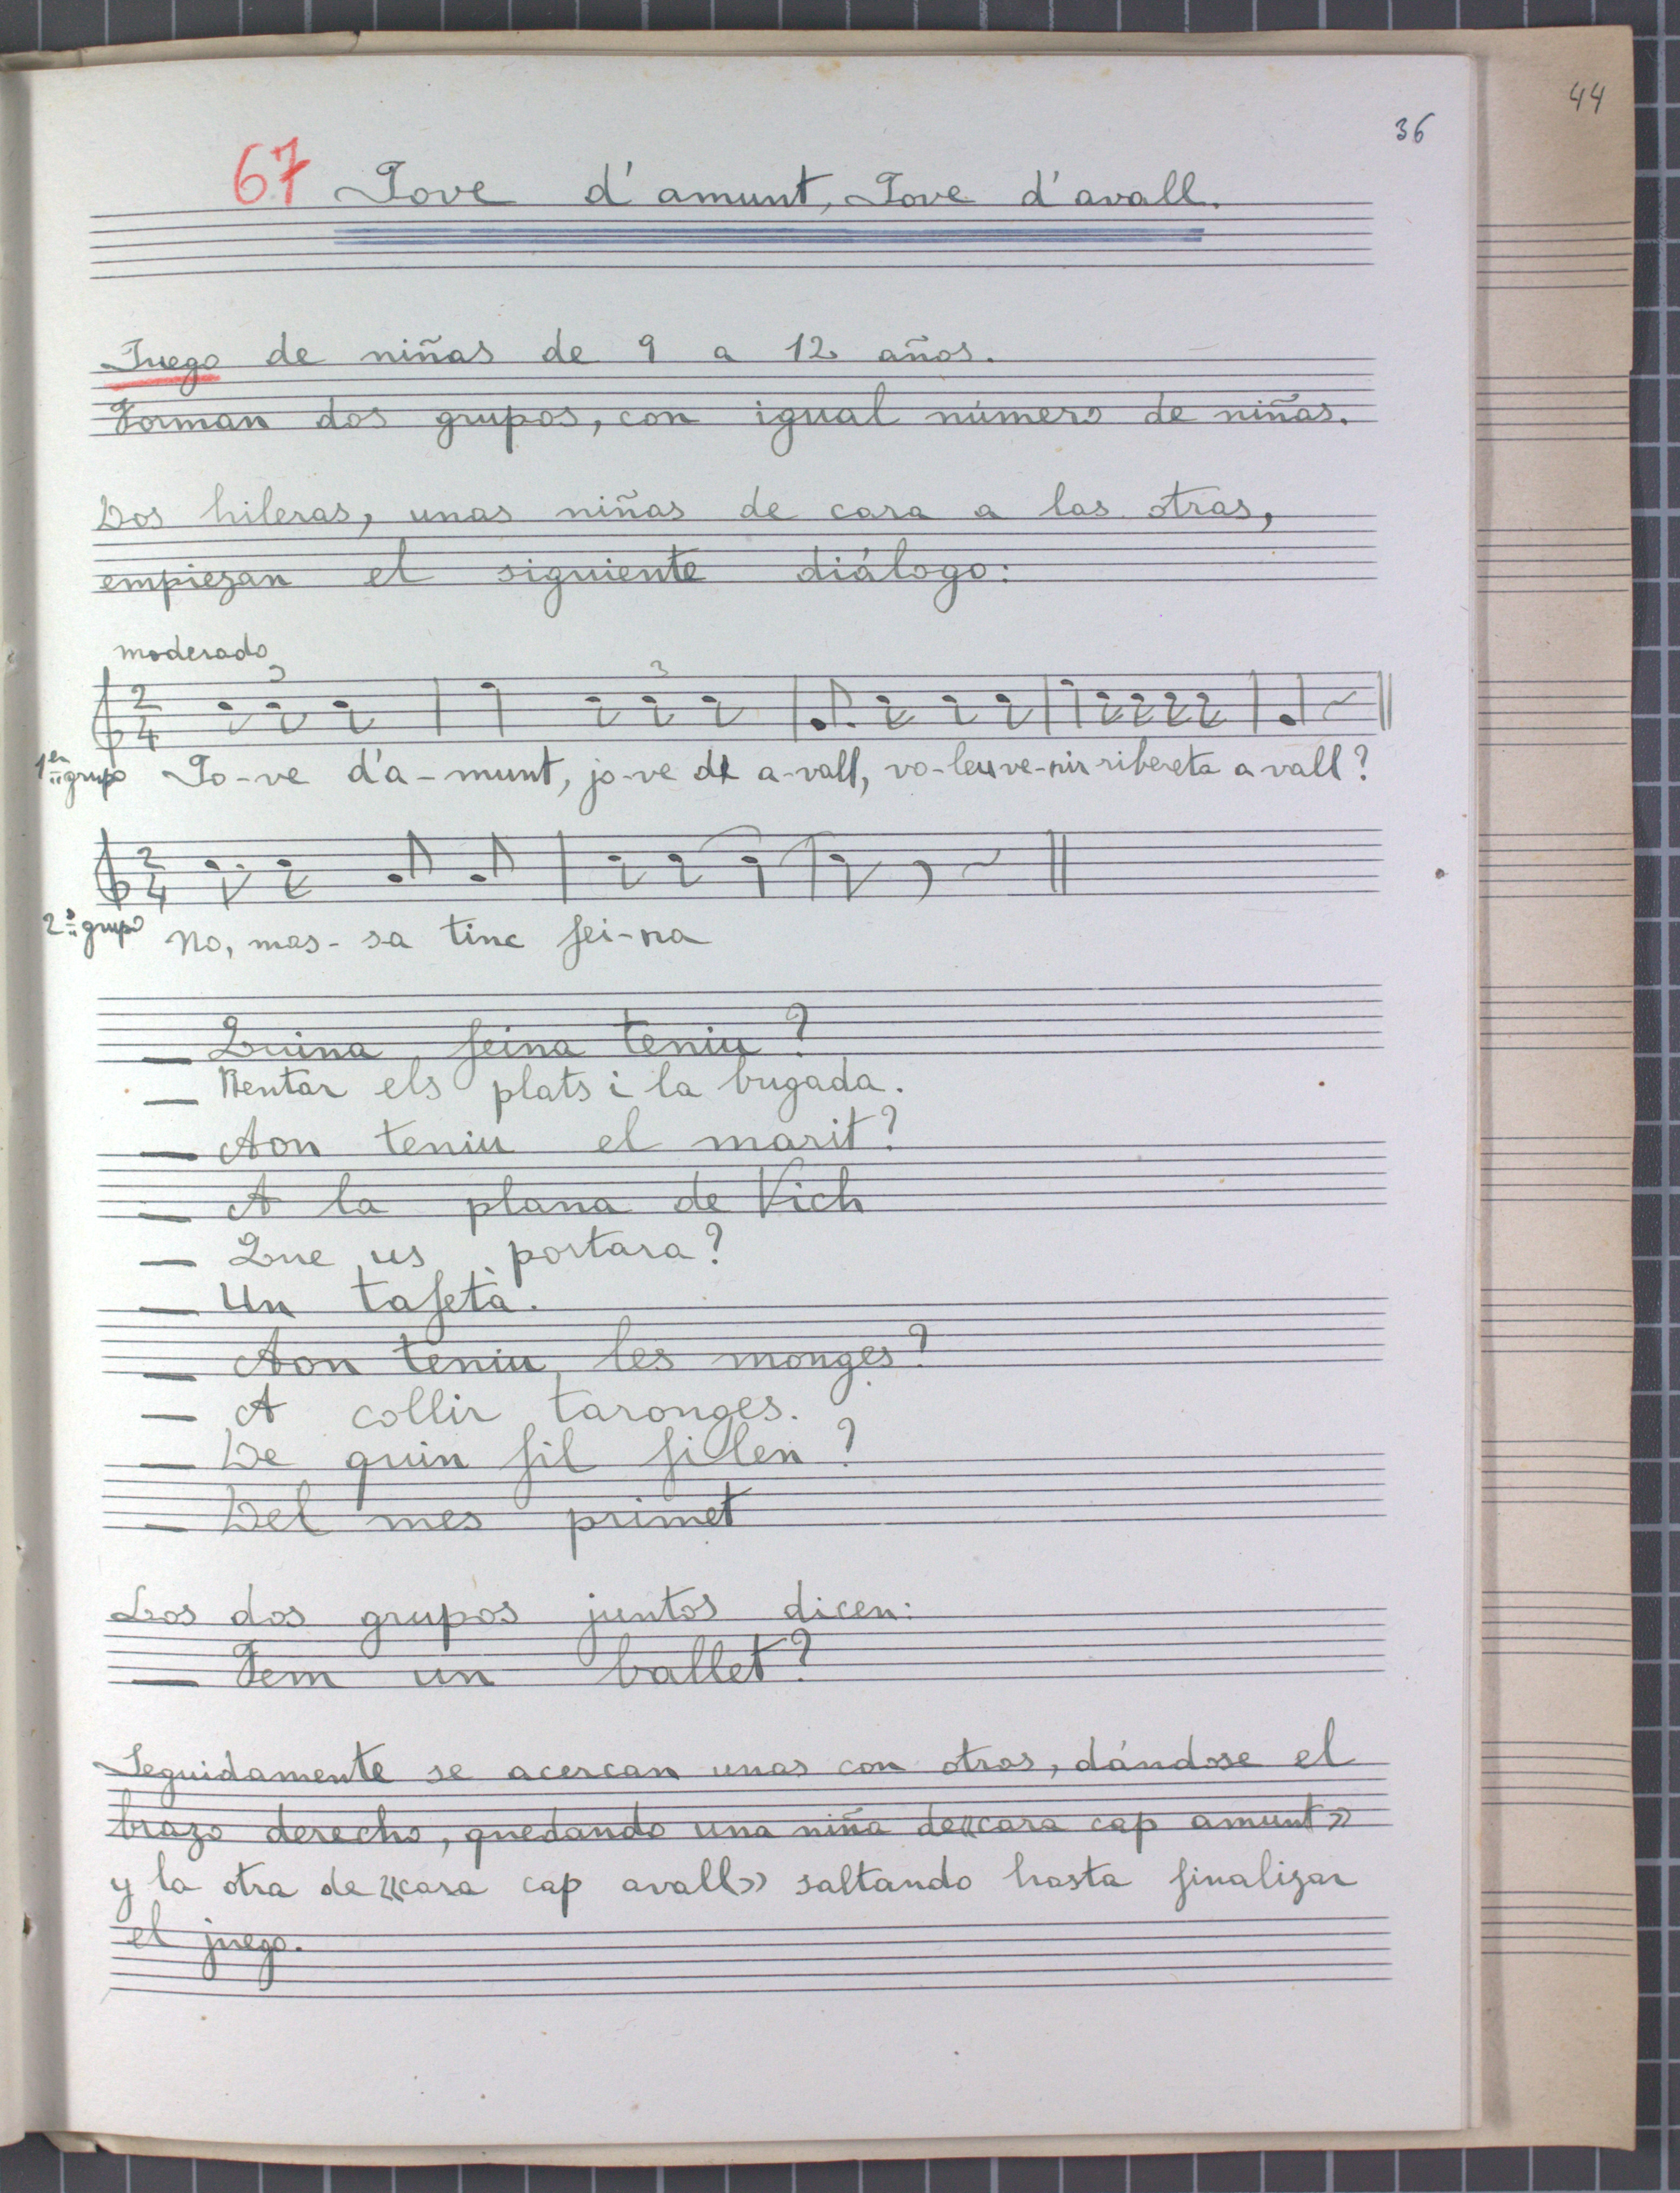 44
36
67 Jove d'amunt, Jove d'avall.
Juego de niñas de 9 a 12 años.
Forman dos grupos, con igual número de niñas.
Dos hileras, unas niñas de cara a las otras,
empiezan el siguiente diálogo:
moderado
3 3
2 4
1er grupo Jo-ve d'a-munt, jo-ve de a-vall, vo-leu ve-nir ribereta avall?
2 4
2º grupo No, mas-sa tinc fei-na
— Quina feina teniu?
— Rentar els plats i la bugada.
— Aon teniu el marit?
— A la plana de Vich
— Que us portara?
— Un tafetà.
— Aon teniu les monges?
— A collir taronges.
— De quin fil filen?
— Del mes primet
Los dos grupos juntos dicen:
— Fem un ballet?
Seguidamente se acercan unas con otras, dándose el
brazo derecho, quedando una niña de «cara cap amunt»
y la otra de «cara cap avall» saltando hasta finalizar
el juego.